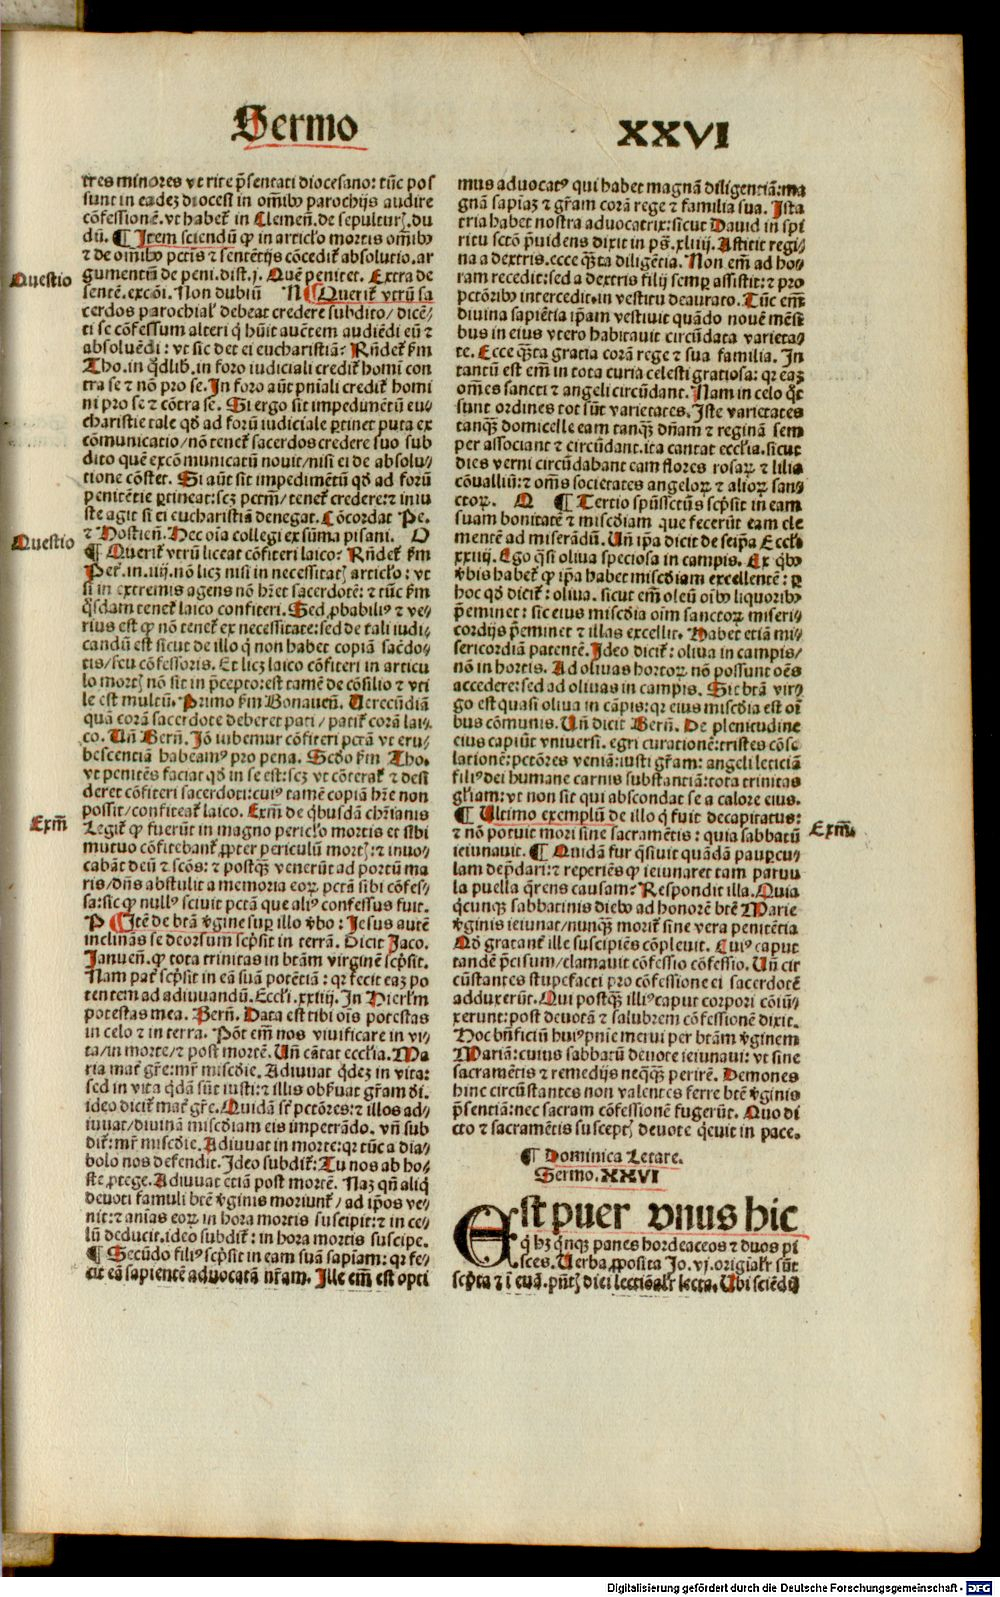 Sermo XXVI
tres minores vt rite p̄sentati diocesano: tūc pos
sunt in eadez diocesi in om̄ibꝰ parochijs audire
cōfessionē. vt habet᷑ in Clemen̄. de sepultur̄. du
dū. ¶ Item sciendū ꝙ in articl̄o mortis om̄ibꝰ
⁊ de om̄ibꝰ pctīs ⁊ sentētijs cōcedit᷑ absolutio. ar
Questio
gumentū de peni. dist. j. Quē penitet. Extra de
sentē. excōi. Non dubiū N ¶ Querit᷑ vtrū sa
cerdos parochial᷑ debeat credere subdito/ dicē/
ti se cōfessum alteri q̇ hūit auc̄tem audiēdi eū ⁊
absoluēdi: vt sic det ei eucharistiā? Rn̄det᷑ ẜm
Tho. in q̇dlib. in foro iudiciali credit᷑ homi con
tra se ⁊ nō pro se. In foro aūt pn̄iali credit᷑ homi
ni pro se ⁊ cōtra se. Si ergo sit impedimētū eu/
charistie tale qd̄ ad forū iudiciale ꝑtinet puta ex
cōmunicatio/ nō tenet᷑ sacerdos credere suo sub
dito quē excōmunicatū nouit/ nisi ei de absolu/
tione cōstet. Si aūt sit impedimētū qd̄ ad forū
penitētie ꝑtineat: scz pctm̄/ tenet᷑ credere: ⁊ iniu
ste agit si ei eucharistiā denegat. Cōcordat Pe.
⁊ Hostien̄. Hec oīa collegi ex sūma pisani. O
Questio
¶ Querit᷑ vtrū liceat cōfiteri laico? Rn̄det᷑ ẜm
Pet᷑. in. iiij. nō licz nisi in necessitat̄ articl̄o: vt
si in extremis agens nō hr̄et sacerdotē: ⁊ tūc ẜm
q̄sdam tenet᷑ laico confiteri. Sed ꝓbabiliꝰ ⁊ ve/
rius est ꝙ nō tenet᷑ ex necessitate: sed de tali iudi/
candū est sicut de illo q̇ non habet copiā sac̄do/
tis/ seu cōfessoris. Et licz laico cōfiteri in articu
lo mort̄ nō sit in p̄cepto: est tamē de cōsilio ⁊ vti
le est multū. Primo ẜm Bonauen̄. Verecūdiā
quā corā sacerdote deberet pati/ patit᷑ corā lai/
co. Vn̄ Bern̄. Jō iubemur cōfiteri pctā vt eru/
bescentiā habeamꝰ pro pena. Scd̄o ẜm Tho.
vt penitēs faciat qd̄ in se est: scz vt cōterat᷑ ⁊ desi
deret cōfiteri sacerdoti: cuiꝰ tamē copiā hr̄e non
possit/ confiteat᷑ laico. Exm̄ de q̇busdā chr̄ianis
Exm̄
Legit᷑ ꝙ fuerūt in magno pericl̄o mortis et sibi
mutuo cōfitebant᷑ ꝓpter periculū mort̄: ⁊ inuo/
cabāt deū ⁊ scōs: ⁊ postꝙ̄ venerūt ad portū ma
ris/ dn̄s abstulit a memoria eoꝝ pctā sibi cōfes/
sa: sic ꝙ nullꝰ sciuit pctā que aliꝰ confessus fuit.
P ¶ Itē de btā v̄gine suꝑ illo v̄bo: Jesus autē
inclinās se deorsum scp̄sit in terrā. Dicit Jaco.
Januen̄. ꝙ tota trinitas in btām virginē scp̄sit.
Nam pat᷑ scp̄sit in eā suā potētiā: qr fecit eaz po
tentem ad adiuuandū. Eccl̄i. xxiiij. In Hierl̄m
potestas mea. Bern̄. Data est tibi oīs potestas
in celo ⁊ in terra. Pōt em̄ nos viuificare in vi/
ta/ in morte/ ⁊ post mortē. Vn̄ cātat eccl̄ia. Ma
ria mat᷑ gr̄e: mr̄ miscd̄ie. Adiuuat q̇dez in vita:
sed in vita q̇dā sūt iusti: ⁊ illis obẜuat gr̄am d̄i.
ideo dicit᷑ mat᷑ gr̄e. Quidā sūt pctōres: ⁊ illos ad/
iuuat/ diuinā miscd̄iam eis impetrādo. vn̄ sub
dit᷑: mr̄ miscd̄ie. Adiuuat in morte: qr tūc a dia/
bolo nos defendit. Ideo subdit᷑: Tu nos ab ho/
ste ꝓtege. Adiuuat etiā post mortē. Naz qn̄ aliq̇
deuoti famuli btē v̄ginis moriunt᷑/ ad ip̄os ve/
nit: ⁊ aīas eoꝝ in hora mortis suscipit: ⁊ in ce/
lū deducit. ideo subdit᷑: in hora mortis suscipe.
¶ Secūdo filiꝰ scp̄sit in eam suā sapīam: qr fe/
cit eā sapientē aduocatā nr̄am. Ille em̄ est opti
mus aduocatꝰ qui habet magnā diligentiā: ma
gnā sapīaz ⁊ gr̄am corā rege ⁊ familia sua. Ista
tria habet nostra aduocatrix: sicut Dauid in spi
ritu sctō p̄uidens dixit in ps̄. xliiij. Astitit regi/
na a dextris. ecce q̄ta diligētia. Non em̄ ad ho/
ram recedit: sed a dextris filij semꝑ assistit: ⁊ pro
pctōribꝰ intercedit. in vestitu deaurato. Tūc em̄
diuina sapiētia ip̄am vestiuit quādo nouē mēsi
bus in eius vtero habitauit circūdata varieta/
te. Ecce q̄ta gratia corā rege ⁊ sua familia. In
tantū est em̄ in tota curia celesti gratiosa: qr eaz
om̄es sancti ⁊ angeli circūdant. Nam in celo qt̄
sunt ordines tot sūt varietates. Iste varietates
tanꝙ̄ domicelle eam tanꝙ̄ dn̄am ⁊ reginā sem
per associant ⁊ circūdant. ita cantat eccl̄ia. sicut
dies verni circūdabant eam flores rosaꝝ ⁊ lilia
cōualliū: ⁊ om̄s societates angeloꝝ ⁊ alioꝝ san/
ctoꝝ. Q ¶ Tertio spūssctūs scp̄sit in eam
suam bonitatē ⁊ miscd̄iam que fecerūt eam cle
mentē ad miserādū. Vn̄ ip̄a dicit de seip̄a Eccl̄i
xxiiij. Ego q̄si oliua speciosa in campis. Ex q̇bꝰ
v̄bis habet᷑ ꝙ ip̄a habet miscd̄iam excellentē: ꝑ
hoc qd̄ dicit᷑: oliua. sicut em̄ oleū oībꝰ liquoribꝰ
p̄eminet: sic eius miscd̄ia oīm sanctoꝝ miseri/
cordijs p̄eminet ⁊ illas excellit. Habet etiā mi/
sericordiā patentē. Ideo dicit᷑: oliua in campis/
nō in hortis. Ad oliuas hortoꝝ nō possunt oēs
accedere: sed ad oliuas in campis. Sic btā vir/
go est quasi oliua in cāpis: qr eius miscd̄ia est oī
bus cōmunis. Vn̄ dicit Bern̄. De plenitudine
eius capiūt vniuersi. egri curationē: tristes cōso
lationē: pctōres veniā: iusti gr̄am: angeli leticiā
filiꝰ dei humane carnis substantiā: tota trinitas
gl̄iam: vt non sit qui abscondat se a calore eius.
¶ Ultimo exemplū de illo q̇ fuit decapitatus:
Exm̄
⁊ nō potuit mori sine sacramētis: quia sabbatū
ieiunauit. ¶ Quidā fur q̄siuit quādā pauꝑcu/
lam dep̄dari: ⁊ reperiēs ꝙ ieiunaret tam paruu
la puella q̄rens causam? Respondit illa. Quia
q̇cunꝙ sabbatinis diebꝰ ad honorē btē Marie
v̄ginis ieiunat/ nunꝙ̄ morit᷑ sine vera penitētia
Qd̄ gratant᷑ ille suscipiēs cōpleuit. Cuiꝰ caput
tandē p̄cisum/ clamauit cōfessio cōfessio. Vn̄ cir
cūstantes stupefacti pro cōfessione ei sacerdotē
adduxerūt. Qui postꝙ̄ illiꝰ caput corpori cōiū/
xerunt: post deuotā ⁊ salubrem cōfessionē dixit.
Hoc bn̄ficiū huiꝰ pn̄ie merui per btām v̄ginem
Mariā: cuius sabbatū deuote ieiunaui: vt sine
sacramētis ⁊ remedijs neq̄ꝙ̄ perirē. Demones
hinc circūstantes non valentes ferre btē v̄ginis
p̄sentiā: nec sacram cōfessionē fugerūt. Quo di
cto ⁊ sacramētis suscept̄ deuote q̇euit in pace.
¶ Dominica Letare.
Sermo. XXVI
Est puer vnus hic
q̇ hz q̇nꝙ panes hordeaceos ⁊ duos pi
sces. Verba ꝓposita Jo. vj. origialr̄ sūt
scp̄ta ⁊ ī euā. pn̄tis diei lectiōalr̄ lecta. Ubi sciēdū
Digitalisierung gefördert durch die Deutsche Forschungsgemeinschaft - DFG